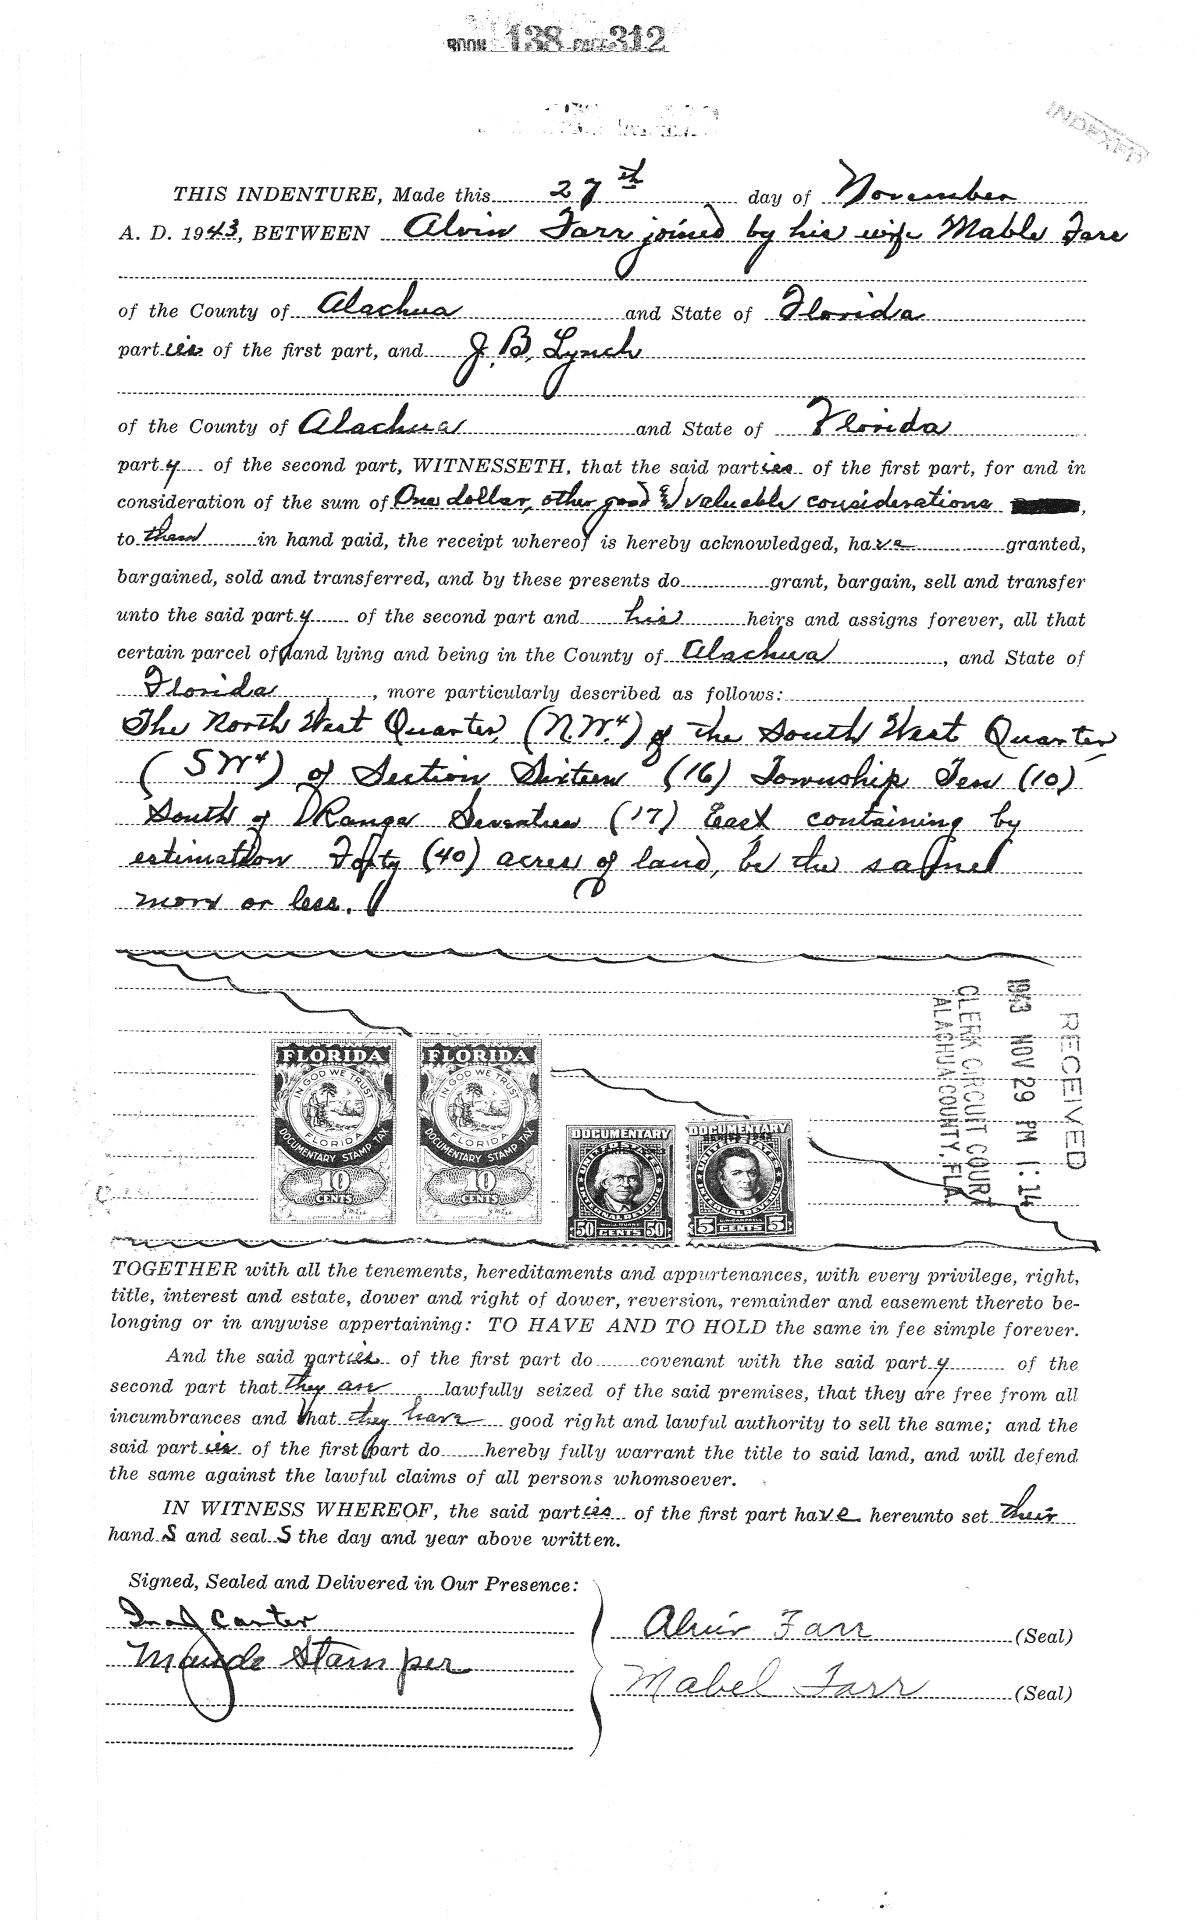 BOOK 138 PAGE 312
INDEXED
THIS INDENTURE, Made this 27th day of November
A. D. 1943, BETWEEN Alvin Farr joined by his wife Mable Farr
of the County of Alachua and State of Florida
parties of the first part, and J. B. Lynch
of the County of Alachua and State of Florida
party of the second part, WITNESSETH, that the said parties of the first part, for and in
consideration of the sum of One dollar, other good & valuable considerations ,
to them in hand paid, the receipt whereof is hereby acknowledged, have granted,
bargained, sold and transferred, and by these presents do grant, bargain, sell and transfer
unto the said party of the second part and his heirs and assigns forever, all that
certain parcel of land lying and being in the County of Alachua , and State of
Florida , more particularly described as follows:
The North West Quarter, (N.W.4) of the South West Quarter
(SW4) of Section Sixteen (16) Township Ten (10)
South of Range Seventeen (17) East containing by
estimation Forty (40) acres of land, be the same
more or less.
RECEIVED
1943 NOV 29 PM 1:14
CLERK CIRCUIT COURT
ALACHUA COUNTY, FLA.
FLORIDA
IN GOD WE TRUST
FLORIDA
DOCUMENTARY STAMP TAX
10
CENTS
FLORIDA
IN GOD WE TRUST
FLORIDA
DOCUMENTARY STAMP TAX
10
CENTS
DOCUMENTARY
UNITED STATES
INTERNAL REVENUE
50 CENTS 50
DOCUMENTARY
UNITED STATES
INTERNAL REVENUE
5 CENTS 5
TOGETHER with all the tenements, hereditaments and appurtenances, with every privilege, right,
title, interest and estate, dower and right of dower, reversion, remainder and easement thereto be-
longing or in anywise appertaining: TO HAVE AND TO HOLD the same in fee simple forever.
And the said parties of the first part do covenant with the said party of the
second part that they are lawfully seized of the said premises, that they are free from all
incumbrances and that they have good right and lawful authority to sell the same; and the
said parties of the first part do hereby fully warrant the title to said land, and will defend
the same against the lawful claims of all persons whomsoever.
IN WITNESS WHEREOF, the said parties of the first part have hereunto set their
hand S and seal S the day and year above written.
Signed, Sealed and Delivered in Our Presence:
Ira J Carter
Maude Stamper
Alvin Farr (Seal)
Mabel Farr (Seal)